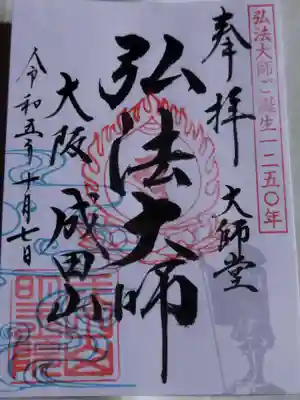 弘法大師ご誕生一二五〇年
奉拝
大師堂
弘法大師
大阪 成田山
令和五年十月七日